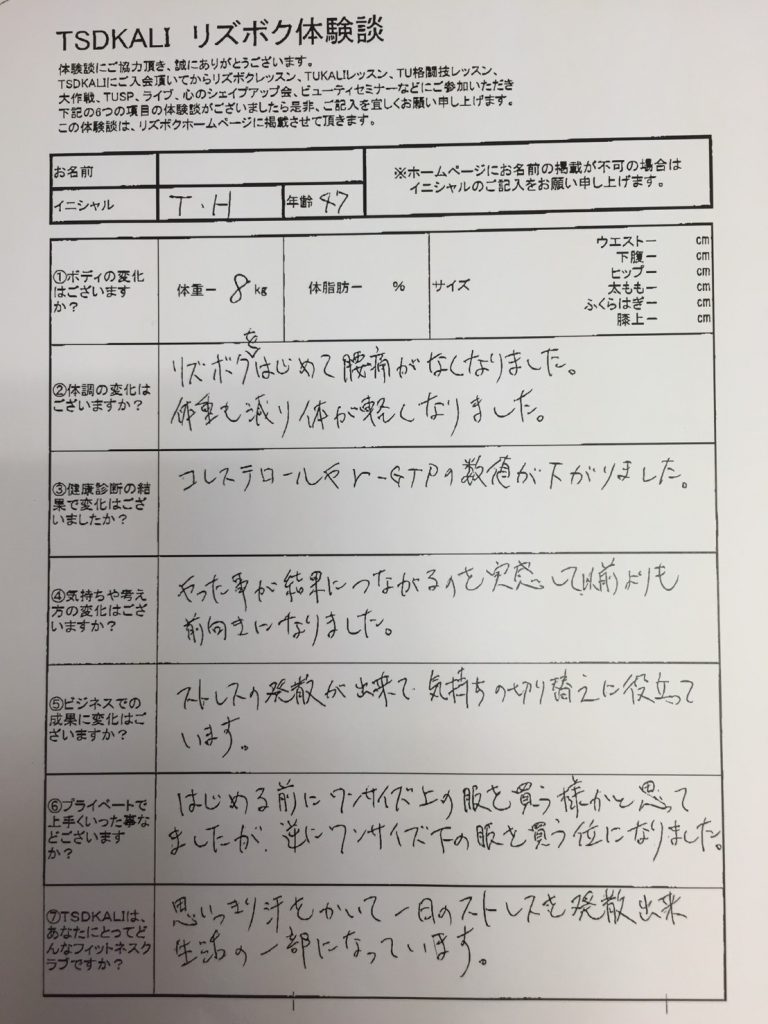 TSDKALI リズボク体験談
体験談にご協力頂き、誠にありがとうございます。
TSDKALIにご入会頂いてからリズボクレッスン、TUKALIレッスン、TU格闘技レッスン、
大作戦、TUSP、ライブ、心のシェイプアップ会、ビューティセミナーなどにご参加いただき
下記の6つの項目の体験談がございましたら是非、ご記入を宜しくお願い申し上げます。
この体験談は、リズボクホームページに掲載させて頂きます。
お名前
※ホームページにお名前の掲載が不可の場合は
イニシャルのご記入をお願い申し上げます。
イニシャル T.H 年齢 47
①ボディの変化
はございます
か?
体重ー 8 kg 体脂肪ー % サイズ
ウエストー cm
下腹ー cm
ヒップー cm
太ももー cm
ふくらはぎー cm
膝上ー cm
②体調の変化は
ございますか?
リズボクをはじめて腰痛がなくなりました。
体重も減り体が軽くなりました。
③健康診断の結
果で変化はござ
いましたか?
コレステロールやγ-GTPの数値が下がりました。
④気持ちや考え
方の変化はござ
いますか?
やった事が結果につながるのを実感して以前よりも
前向きになりました。
⑤ビジネスでの
成果に変化はご
ざいますか?
ストレスの発散が出来て、気持ちの切り替えに役立って
います。
⑥プライベートで
上手くいった事な
どございます
か?
はじめる前にワンサイズ上の服を買う様かと思って
ましたが、逆にワンサイズ下の服を買う位になりました。
⑦TSDKALIは、
あなたにとってど
んなフィットネスク
ラブですか?
思いっきり汗をかいて一日のストレスを発散出来
生活の一部になっています。